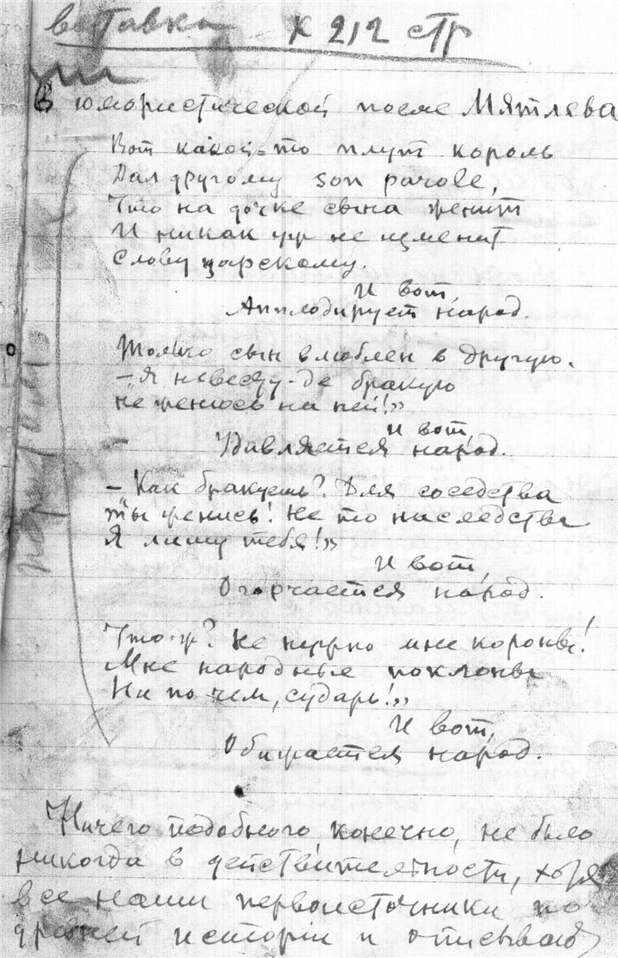 вставка к 212 стр
В юмористической поэме Мятлева
Вот какой-то плут король
Дал другому son parole,
Что на дочке сына женит
И никак уж не изменит
Слову царскому.
И вот,
Апплодирует народ.
Только сын влюблен в другую.
– Я невесту-де бракую
не женюсь на ней!»
И вот,
Удивляется народ.
– Как бракуешь? Для соседства
ты женись! Не то наследства
Я лишу тебя!»
И вот,
Огорчается народ.
Что-ж? Не нужно мне короны!
Мне народные поклоны
Ни по чем, сударь!»
И вот,
Обижается народ.
Ничего подобного конечно, не было
никогда в действительности, хотя
все наши первоисточники по
древней истории и описывают